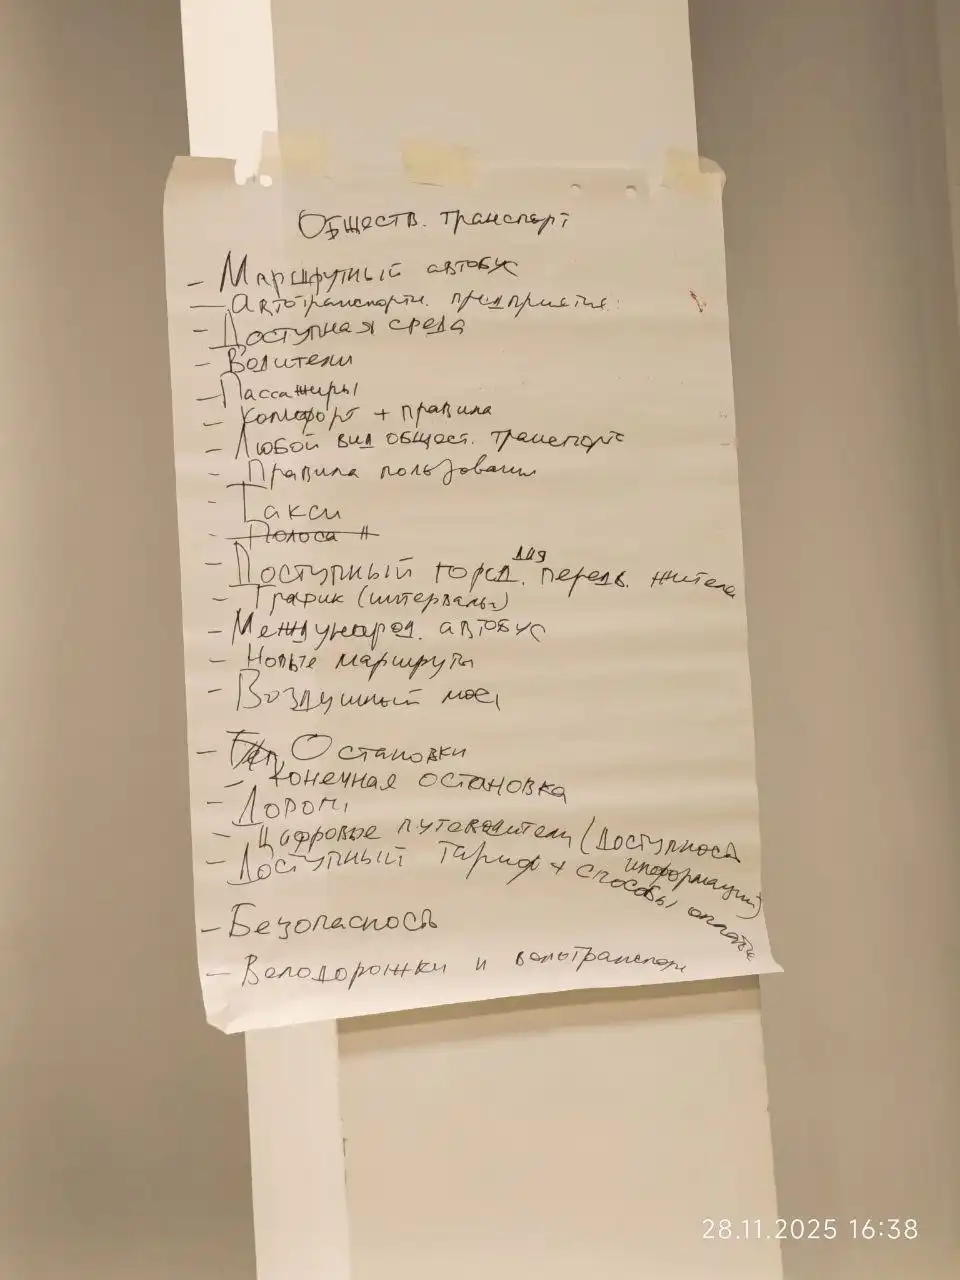 Обществ. транспорт
- Маршрутный автобус
- Автотранспортн. предприятия:
- Доступная среда
- Водители
- Пассажиры
- Комфорт + правила
- Любой вид общест. транспорта
- Правила пользования
- Такси
- Полоса Н
- Доступный город для передв. жителей
- График (интервалы)
- Международ. автобус
- Новые маршруты
- Воздушный мост
- Остановки
- Конечная остановка
- Дороги
- Цифровые путеводители (доступность информации)
- Доступный тариф + способы оплаты
- Безопасность
- Велодорожки и велотранспорт
28.11.2025 16:38